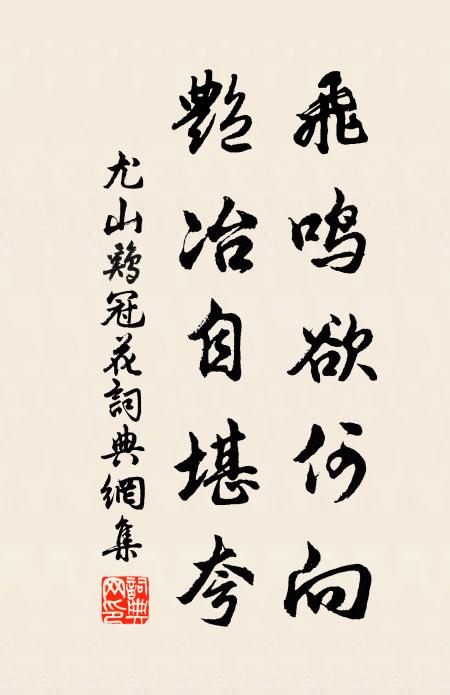 飛鳴欲何向
艷冶自堪夸
尤山鷄冠花詞典網集
詞典
网印